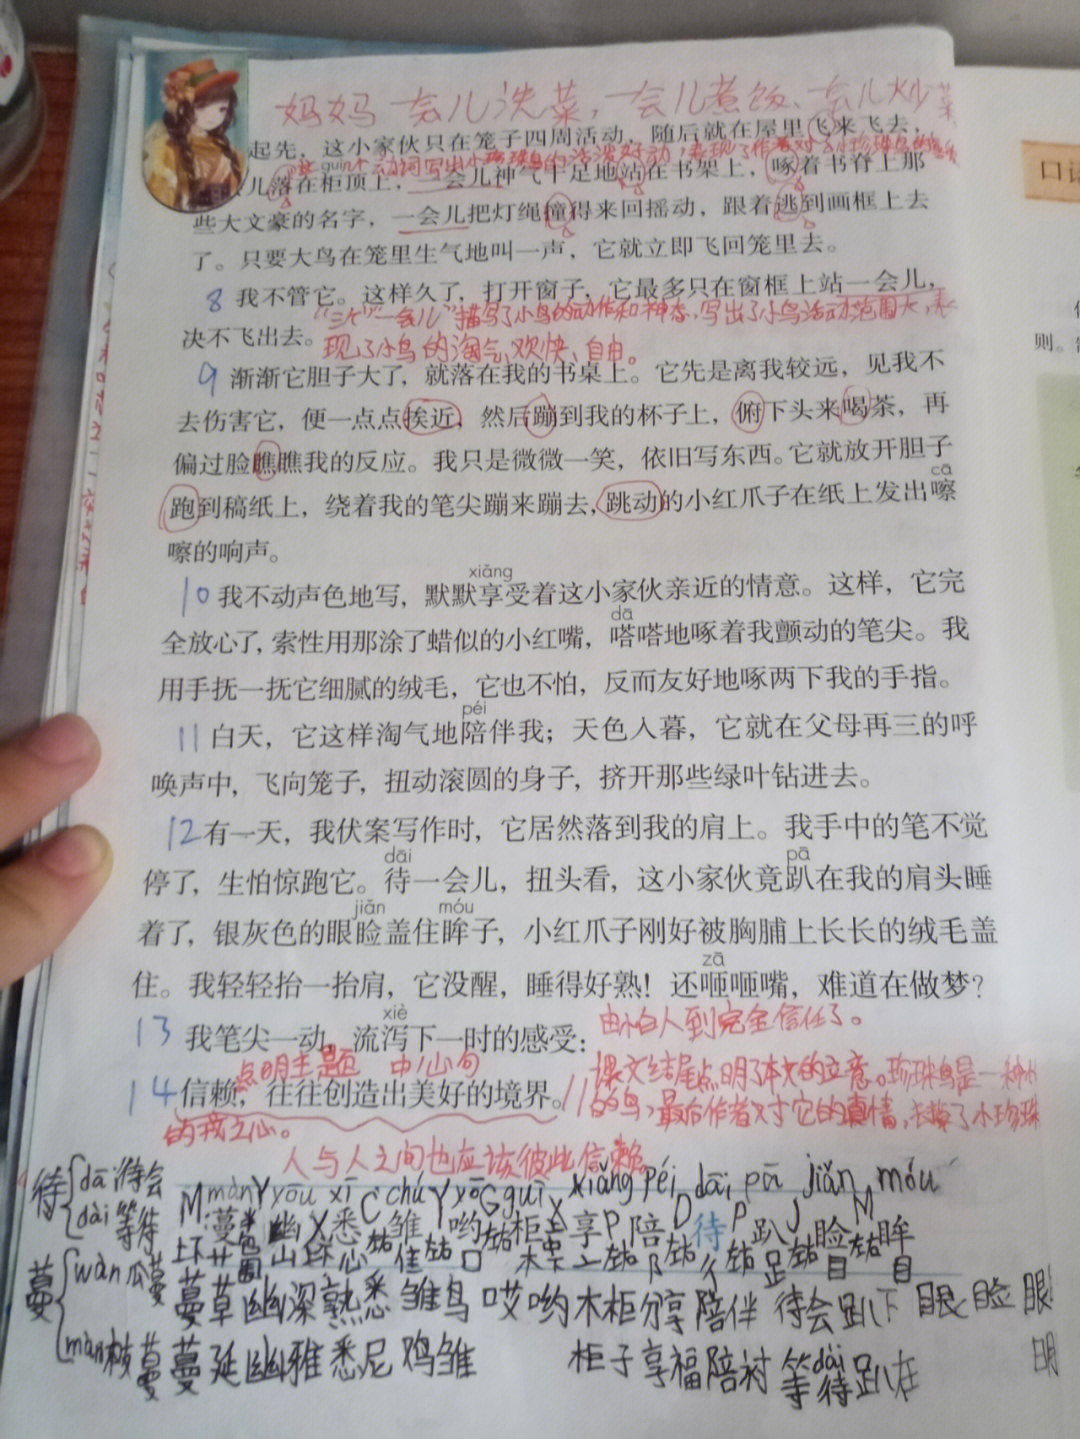 妈妈一会儿洗菜,一会儿煮饭、一会儿炒菜
起先,这小家伙只在笼子四周活动,随后就在屋里飞来飞去,
guì
儿落在柜顶上,一会儿神气十足地站在书架上,啄着书背上那
些大文豪的名字,一会儿把灯绳撞得来回摇动,跟着逃到画框上去
了。只要大鸟在笼里生气地叫一声,它就立即飞回笼里去。
8 我不管它。这样久了,打开窗子,它最多只在窗框上站一会儿,
"三个""一会儿"描写了小鸟的动作和神态,写出了小鸟活动范围大,表
决不飞出去。
现了小鸟的淘气、欢快、自由。
9 渐渐它胆子大了,就落在我的书桌上。它先是离我较远,见我不
去伤害它,便一点点挨近,然后蹦到我的杯子上,俯下头来喝茶,再
偏过脸瞧瞧我的反应。我只是微微一笑,依旧写东西。它就放开胆子
cā
跑到稿纸上,绕着我的笔尖蹦来蹦去,跳动的小红爪子在纸上发出嚓
嚓的响声。
xiǎng
10 我不动声色地写,默默享受着这小家伙亲近的情意。这样,它完
dā
全放心了,索性用那涂了蜡似的小红嘴,嗒嗒地啄着我颤动的笔尖。我
用手抚一抚它细腻的绒毛,它也不怕,反而友好地啄两下我的手指。
péi
11 白天,它这样淘气地陪伴我;天色入暮,它就在父母再三的呼
唤声中,飞向笼子,扭动滚圆的身子,挤开那些绿叶钻进去。
12 有一天,我伏案写作时,它居然落到我的肩上。我手中的笔不觉
dāi pā
停了,生怕惊跑它。待一会儿,扭头看,这小家伙竟趴在我的肩头睡
jiǎn móu
着了,银灰色的眼睑盖住眸子,小红爪子刚好被胸脯上长长的绒毛盖
zā
住。我轻轻抬一抬肩,它没醒,睡得好熟!还咂咂嘴,难道在做梦?
xiè 由怕人到完全信任了。
13 我笔尖一动,流泻下一时的感受:
点明主题 中心句 课文结尾点明了本文的立意。珍珠鸟是一种
14 信赖,往往创造出美好的境界。
的鸟,最后作者对它的真情,去掉了小珍珠
的戒之心。
人与人之间也应该彼此信赖
待 dāi 待会 dài 等待
M màn Y yōu xī C chú Y yō G guì X xiǎng péi D dāi pā jiǎn M móu
蔓 幽 X 悉 雏 哟 柜 享 P 陪 待 P 趴 J 睑 眸
蔓 wàn 瓜蔓 màn 枝蔓
蔓草 幽深 熟悉 雏鸟 哎哟 木柜 分享 陪伴 待会 趴下 眼睑
蔓延 幽雅 悉尼 鸡雏 柜子 享福 陪衬 等待 dài 趴在
口语
则。